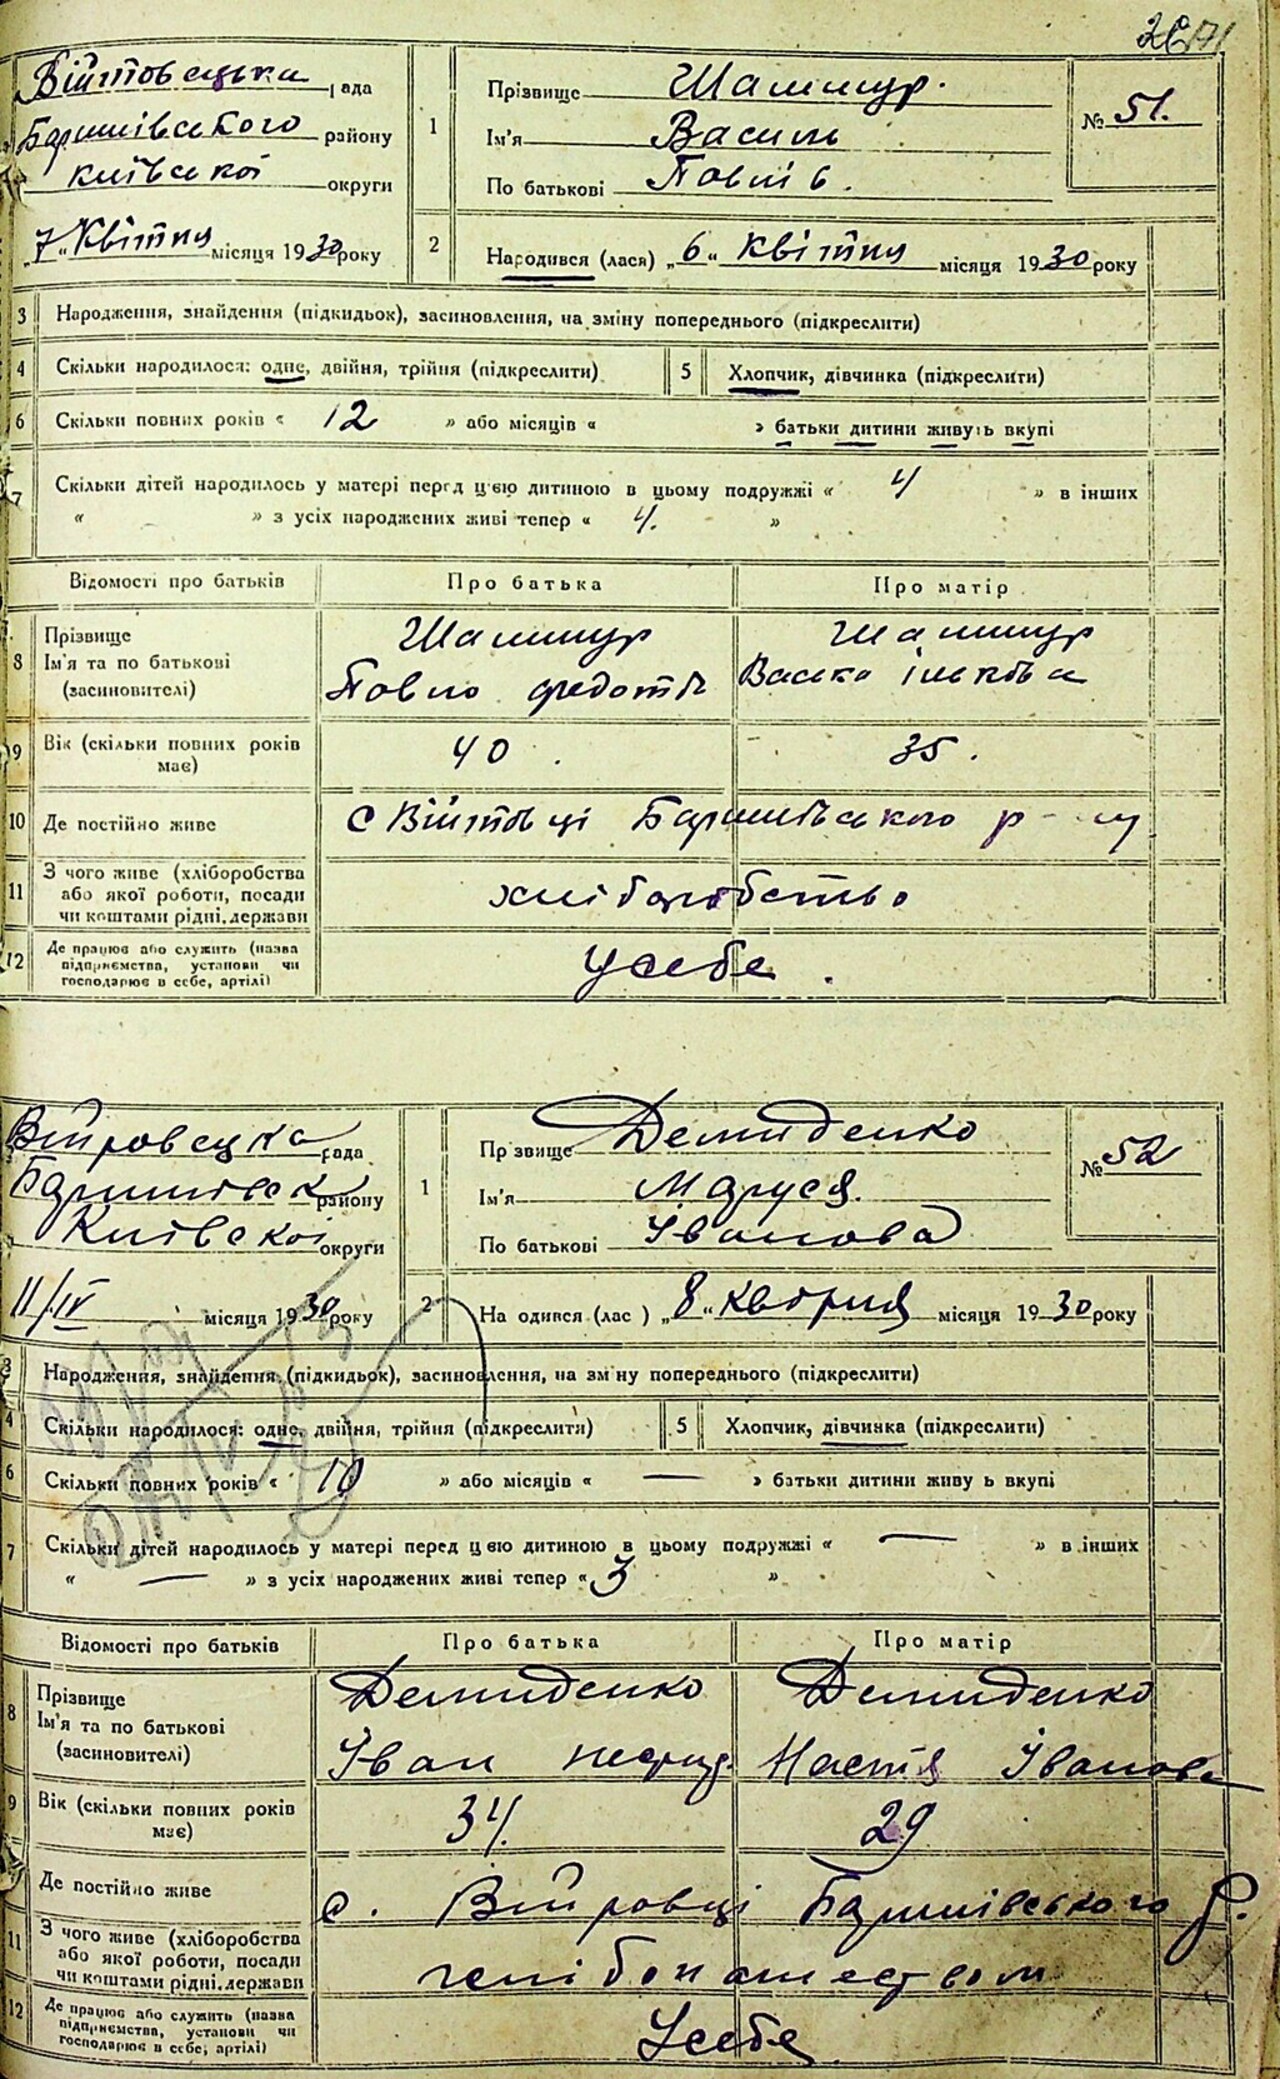 Війтовецька рада
Баришівського району
київської округи
„7“ Квітня місяця 1930 року
1
Прізвище Шаммур.
Ім'я Василь
По батькові Павлів.
№ 51.
2
Народився (лася) „6“ квітня місяця 1930 року
3 Народження, знайдення (підкидьок), засиновлення, на зміну попереднього (підкреслити)
4 Скільки народилося: одне, двійня, трійня (підкреслити) 5 Хлопчик, дівчинка (підкреслити)
6 Скільки повних років « 12 » або місяців « » батьки дитини живуть вкупі
7 Скільки дітей народилось у матері перед цією дитиною в цьому подружжі « 4 » в інших
« » з усіх народжених живі тепер « 4. »
Відомості про батьків Про батька Про матір
8 Прізвище Шаммур Шаммур
Ім'я та по батькові Павло Федотів Васька Ількова
(засиновителі)
9 Вік (скільки повних років має) 40. 35.
10 Де постійно живе с Війтовці Баришівського р-ну
11 З чого живе (хліборобства
або якої роботи, посади хліборобство
чи коштами рідні, держави
12 Де працює або служить (назва
підприємства, установи чи усебе.
господарює в себе, артілі)
Війтовецка рада
Баришівськ району
Київскої округи
11/IV місяця 1930 року
1
Прізвище Демиденко
Ім'я Маруся.
По батькові Іванова
№ 52
2
На одився (лас ) „8“ Квітня місяця 1930 року
3 Народження, знайдення (підкидьок), засиновлення, на зм ну попереднього (підкреслити)
4 Скільки народилося: одне, двійня, трійня (підкреслити) 5 Хлопчик, дівчинка (підкреслити)
6 Скільки повних років « 10 » або місяців « — » батьки дитини живу ь вкупі
7 Скільки дітей народилось у матері перед цією дитиною в цьому подружжі « — » в інших
« — » з усіх народжених живі тепер « 3 »
Відомості про батьків Про батька Про матір
8 Прізвище Демиденко Демиденко
Ім'я та по батькові Іван Настя Іванова
(засиновителі)
9 Вік (скільки повних років має) 34. 29
Де постійно живе с. Війтовці Баришівського р.
11 З чого живе (хліборобства
або якої роботи, посади
чи коштами рідні, держави
12 Де працює або служить (назва
підприємства, установи чи Усебе.
господарює в себе, артілі)